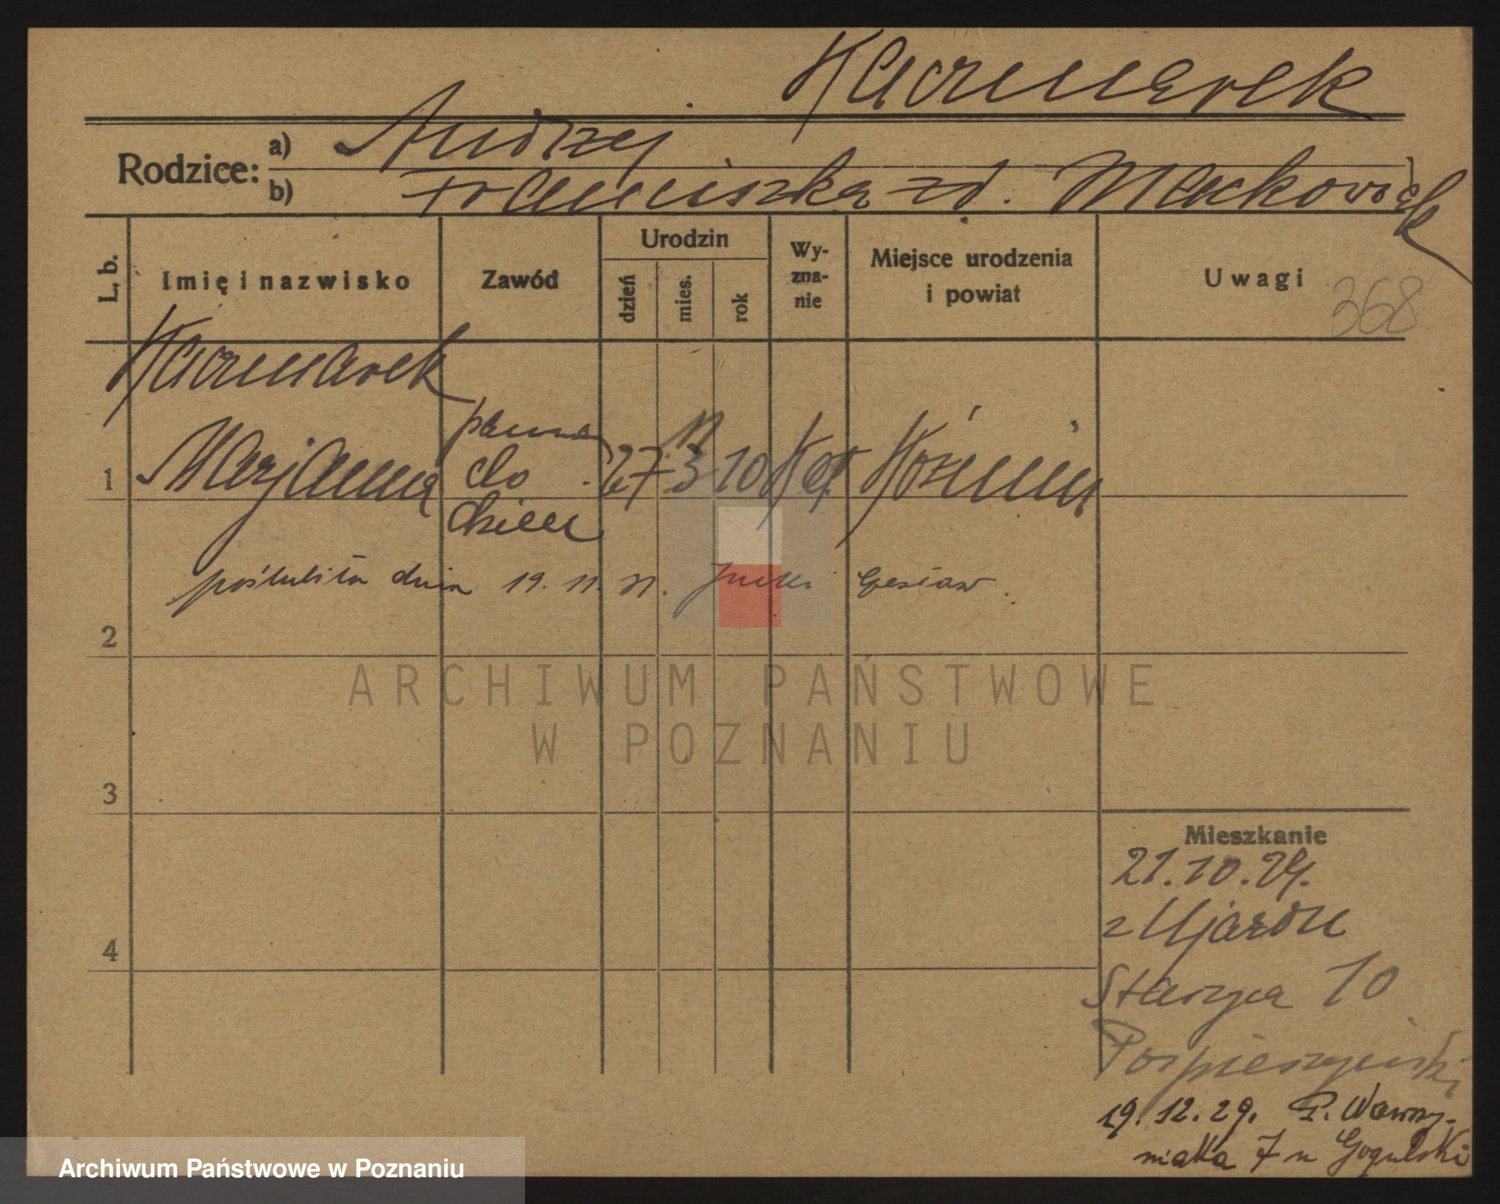 Kaczmarek
Rodzice:
a) Andrzej
b) Franciszka zd. Maćkowiak
L. b.
Imię i nazwisko
Zawód
Urodzin
dzień
mies.
rok
Wy-
zna-
nie
Miejsce urodzenia
i powiat
Uwagi
368
Kaczmarek
1 Marjanna
panna
do
dzieci
27 3 10 Kat Koźmin
poślubiła dnia 19. 11. 31. Czesław.
2
ARCHIWUM PAŃSTWOWE
W POZNANIU
3
4
Mieszkanie
21.10.29.
z Ujazdu
Starzyca 10
Pospieszyński
19.12.29. P. Wawrzy-
niaka 7 u Gogulski
Archiwum Państwowe w Poznaniu